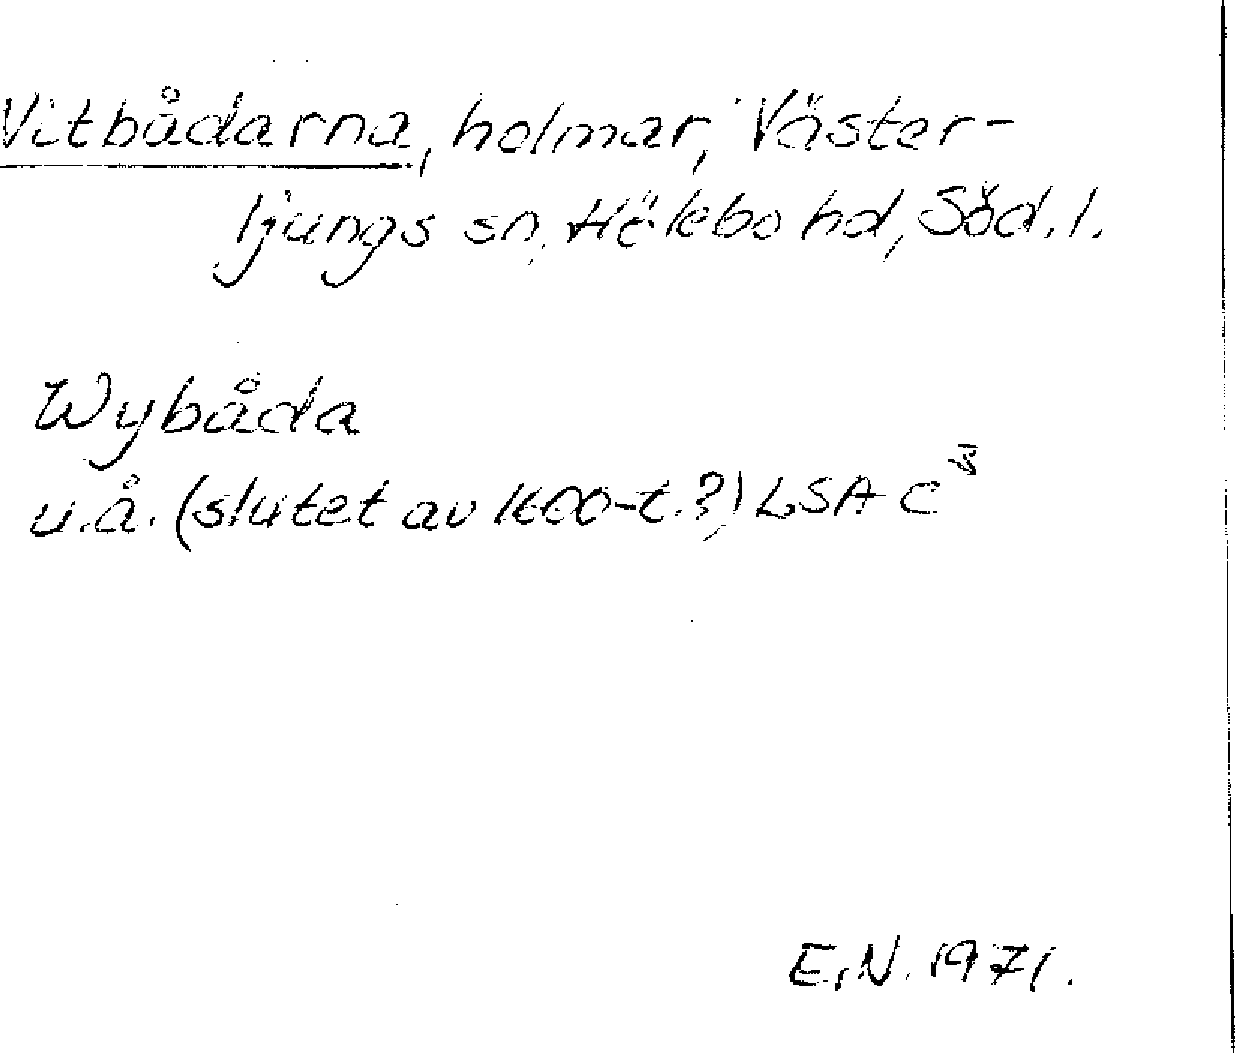 Vitbådarna, holmar, Väster-
ljungs sn, Hölebo hd, Söd. l.
Wybåda
u.å. (slutet av 1600-t.?) LSA C³
E.N. 1971.